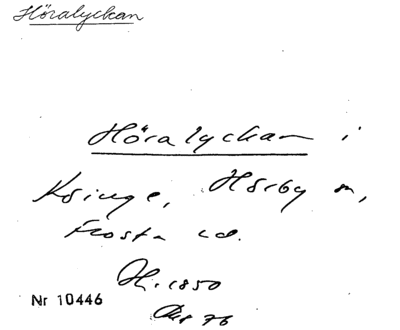 Höralyckan
Höralyckan i
Ksinge, Hörby sn,
Frosta hd.
H. 1850
Nr 10446